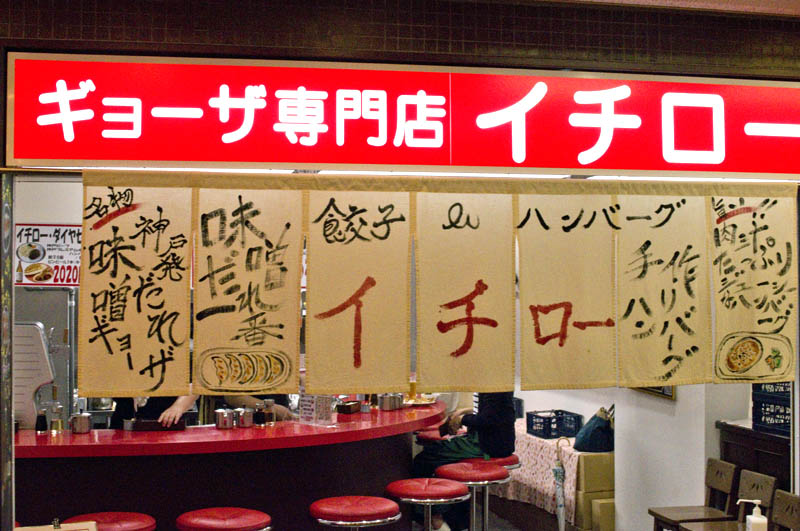 ギョーザ専門店 イチロー
名物
神戸発
味噌だれ
ギョーザ
味噌だれ
一番
餃子 & ハンバーグ
イチロー
手作り
ハンバーグ
旨い!!
肉
ハンバーグ
イチロー・ダイヤセ
2020